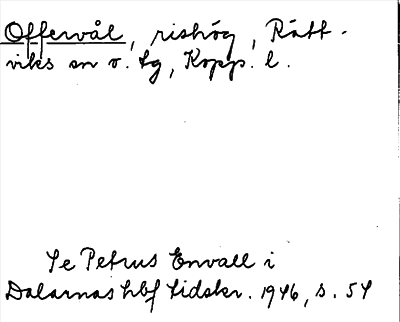 Offervål, rishög, Rätt-
viks sn o. tg, Kopp. l.
Se Petrus Envall i
Dalarnas hbf tidskr. 1946, s. 54